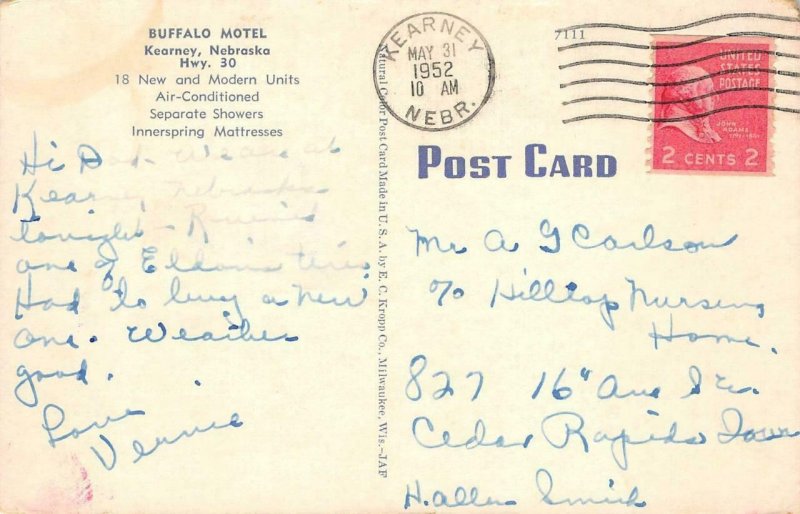 BUFFALO MOTEL
Kearney, Nebraska
Hwy. 30
18 New and Modern Units
Air-Conditioned
Separate Showers
Innerspring Mattresses
Hi
Kearney Nebraska
tonight. Ruined
one of Eldon's tires.
Had to buy a new
one. Weather
good.
Love
Vernie
Natural Color Post Card Made in U.S.A. by E. C. Kropp Co., Milwaukee, Wis.-JAF
KEARNEY
MAY 31
1952
10 AM
NEBR.
7111
UNITED
STATES
POSTAGE
JOHN
ADAMS
2 CENTS 2
POST CARD
Mr A G Carlson
c/o Hilltop Nursing
Home.
827 16" Ave S E.
Cedar Rapids Iowa
H. Allen Smith